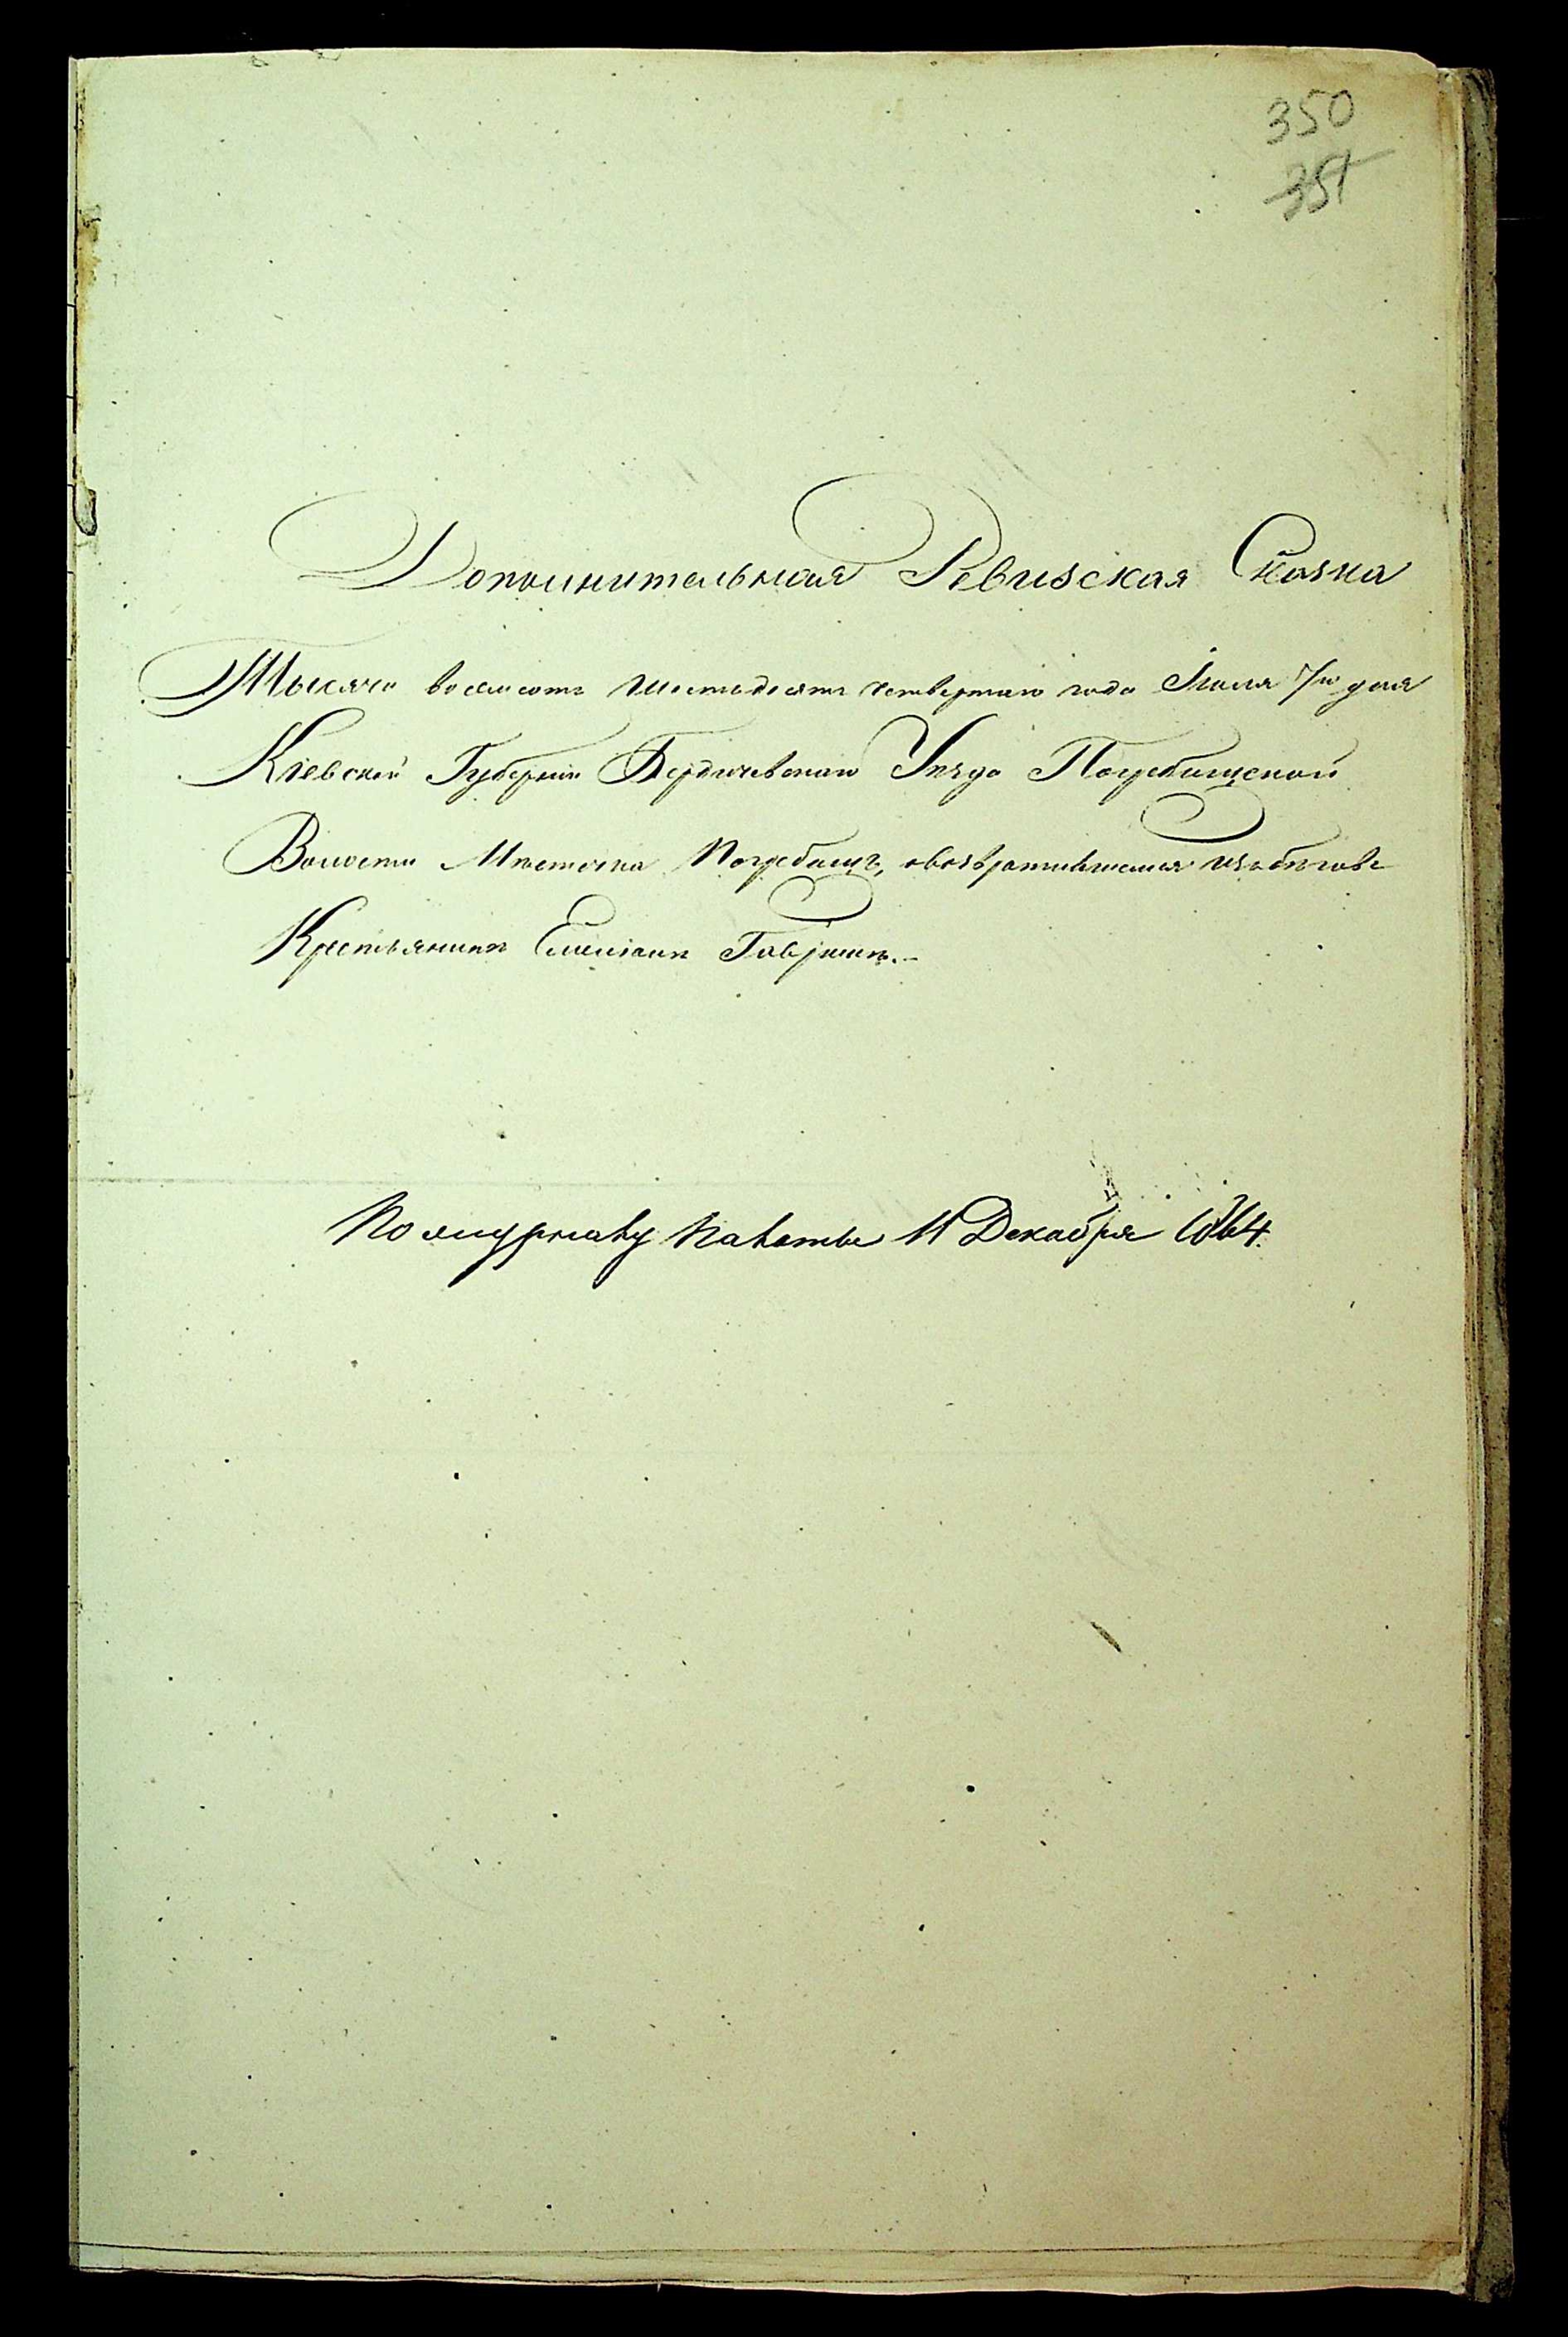 350
351
Дополнительная Ревизская Сказка
Тысяча восемсотъ шестьдесятъ четвертаго года Іюля 7го дня
Кіевской Губерніи Бердичевскаго Уѣзда Погребищской
Волости Мѣстечка Погребищъ, овозвратившемся изъ бѣговъ
Крестьянинѣ
По журналу Палаты 11 Декабря 1864.